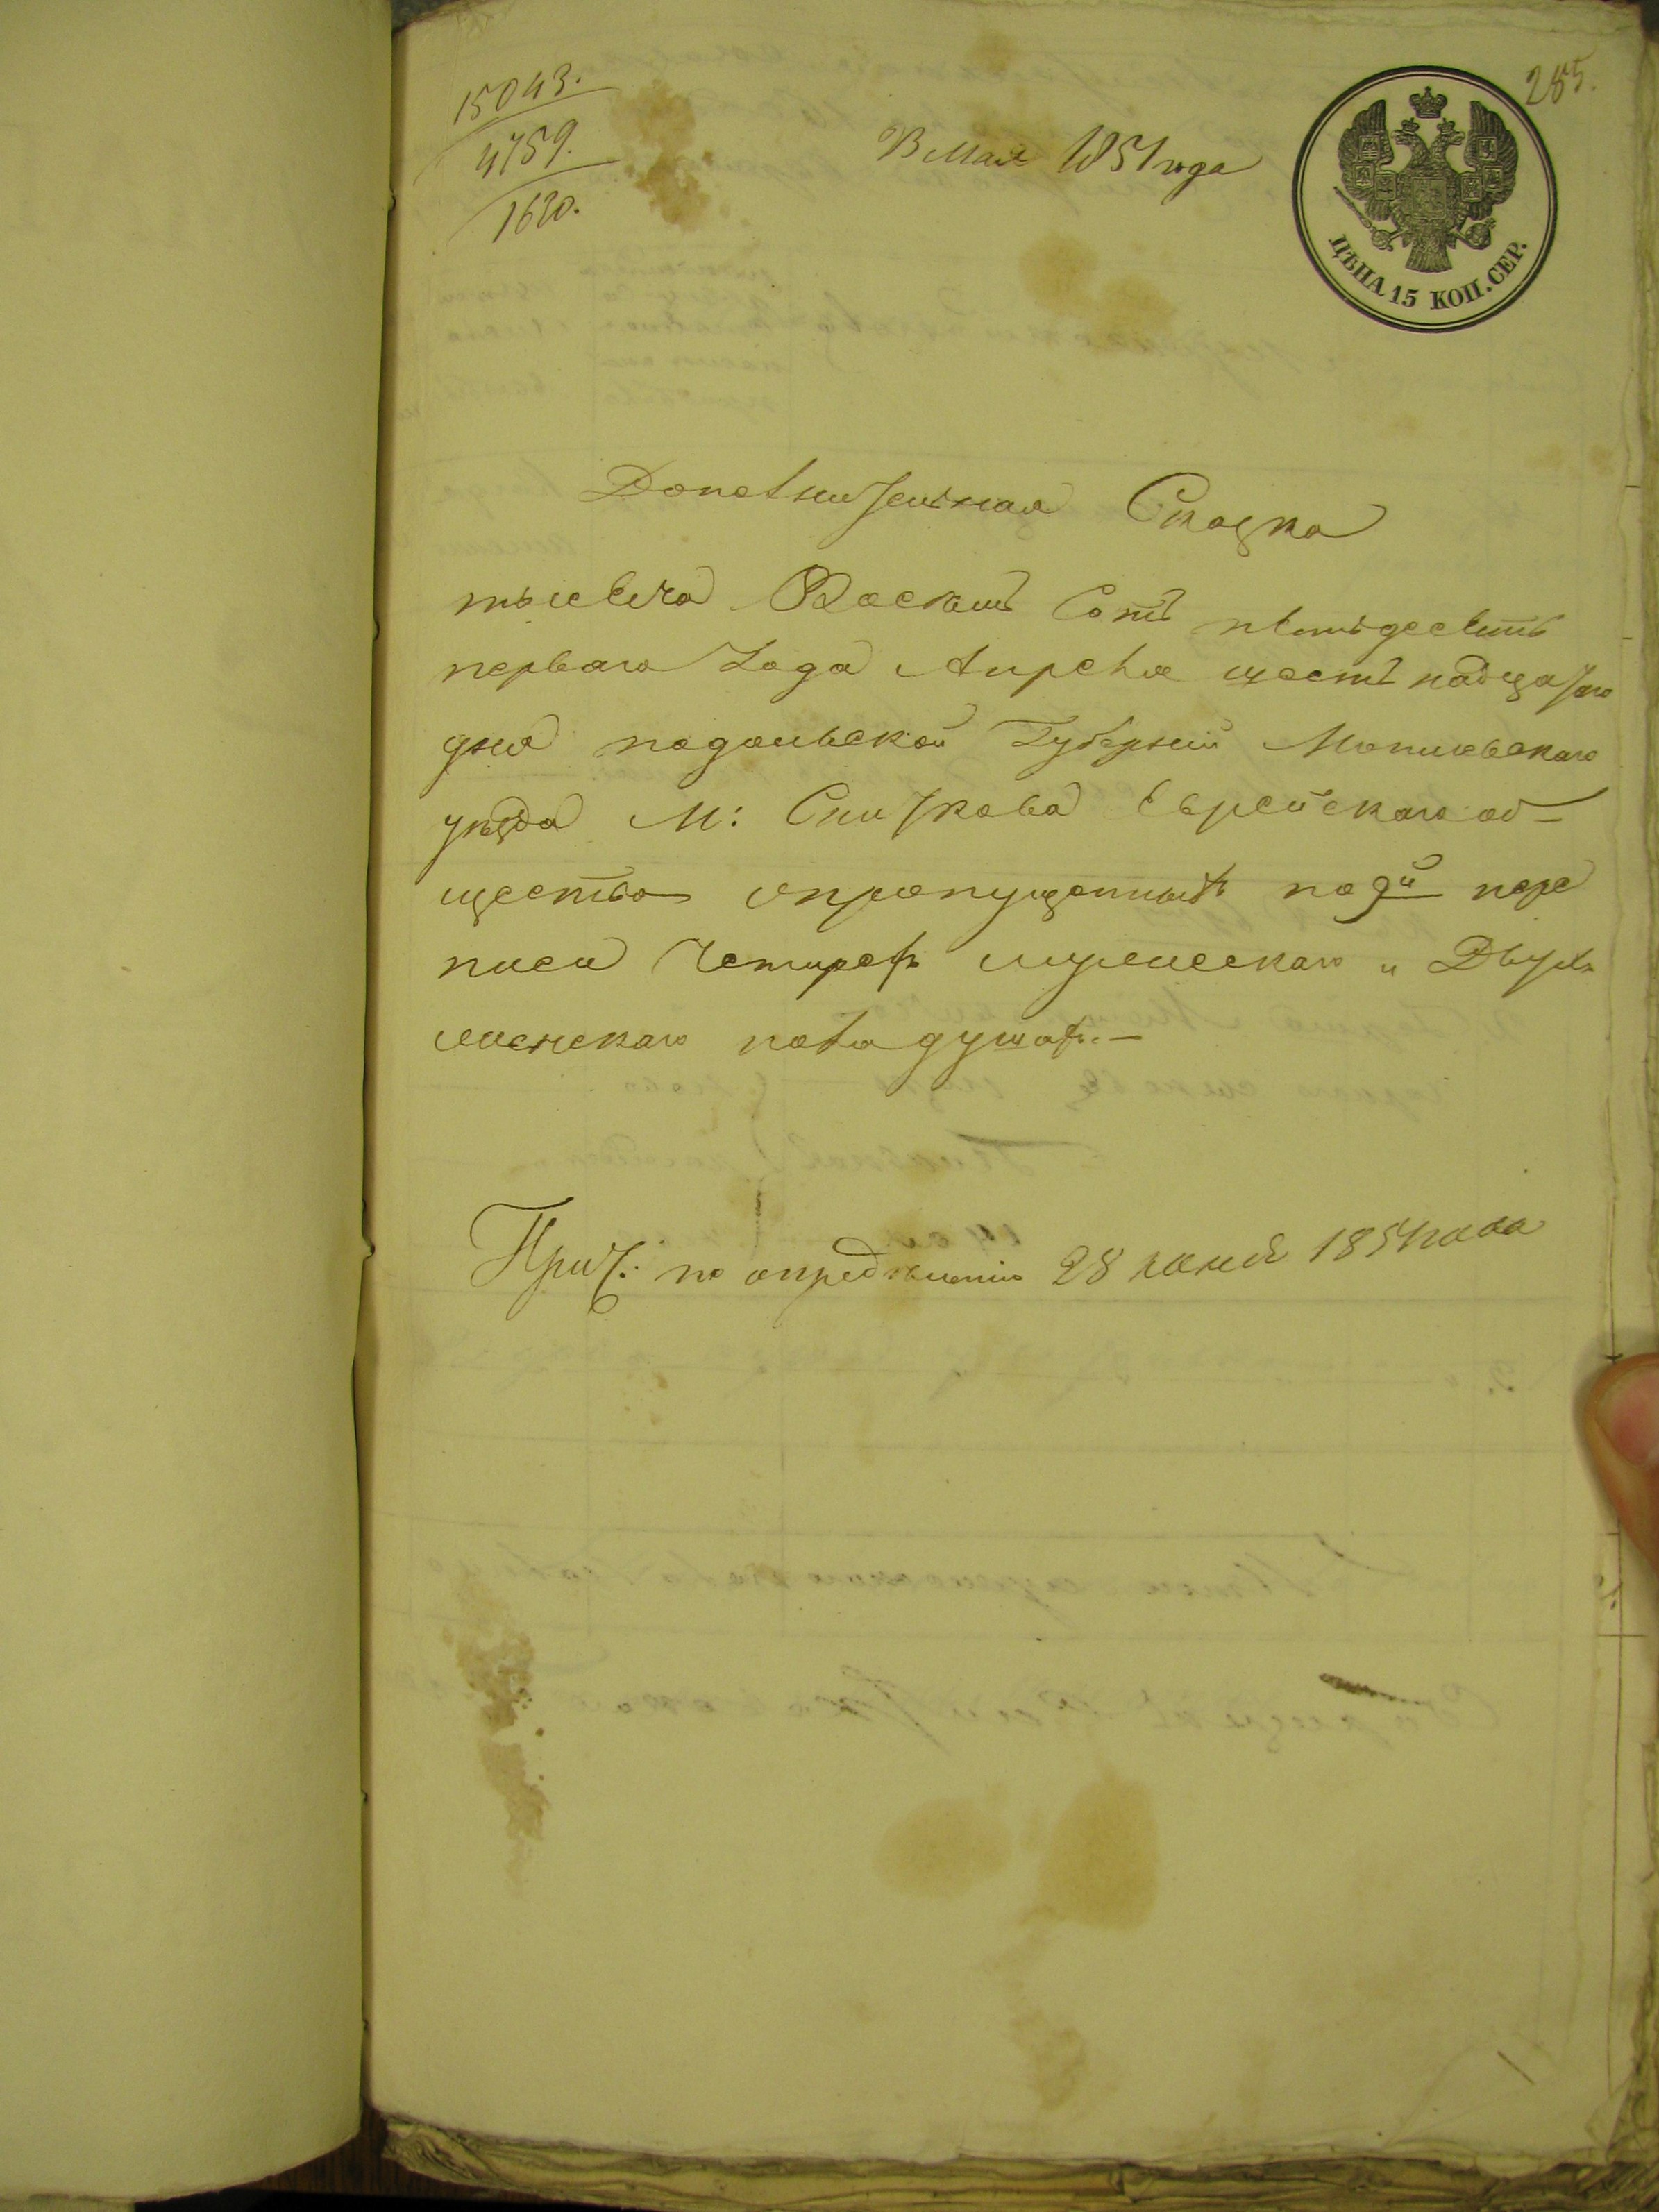 15043.
4759.
1620.
285.
В Мая 1851 года
ЦѢНА 15 КОП. СЕР.
Дополнительная Сказка
тысяча Восемь Сотъ пятьдесятъ
перваго Года Апреля шестънадцатаго
дня подольской Губерніи Могилевскаго
уѣзда М: Сниткова Еврейскаго об-
щества опропущенныхъ по 9й пере
писи Четырехъ мужескаго и Двухъ
женскаго пола душахъ.—
При по определенію 28 1851 года